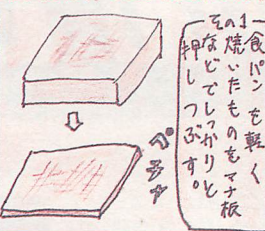 その1
食パンを軽く
焼いたものをマナ板
などでしっかりと
押しつぶす。
ペチャ